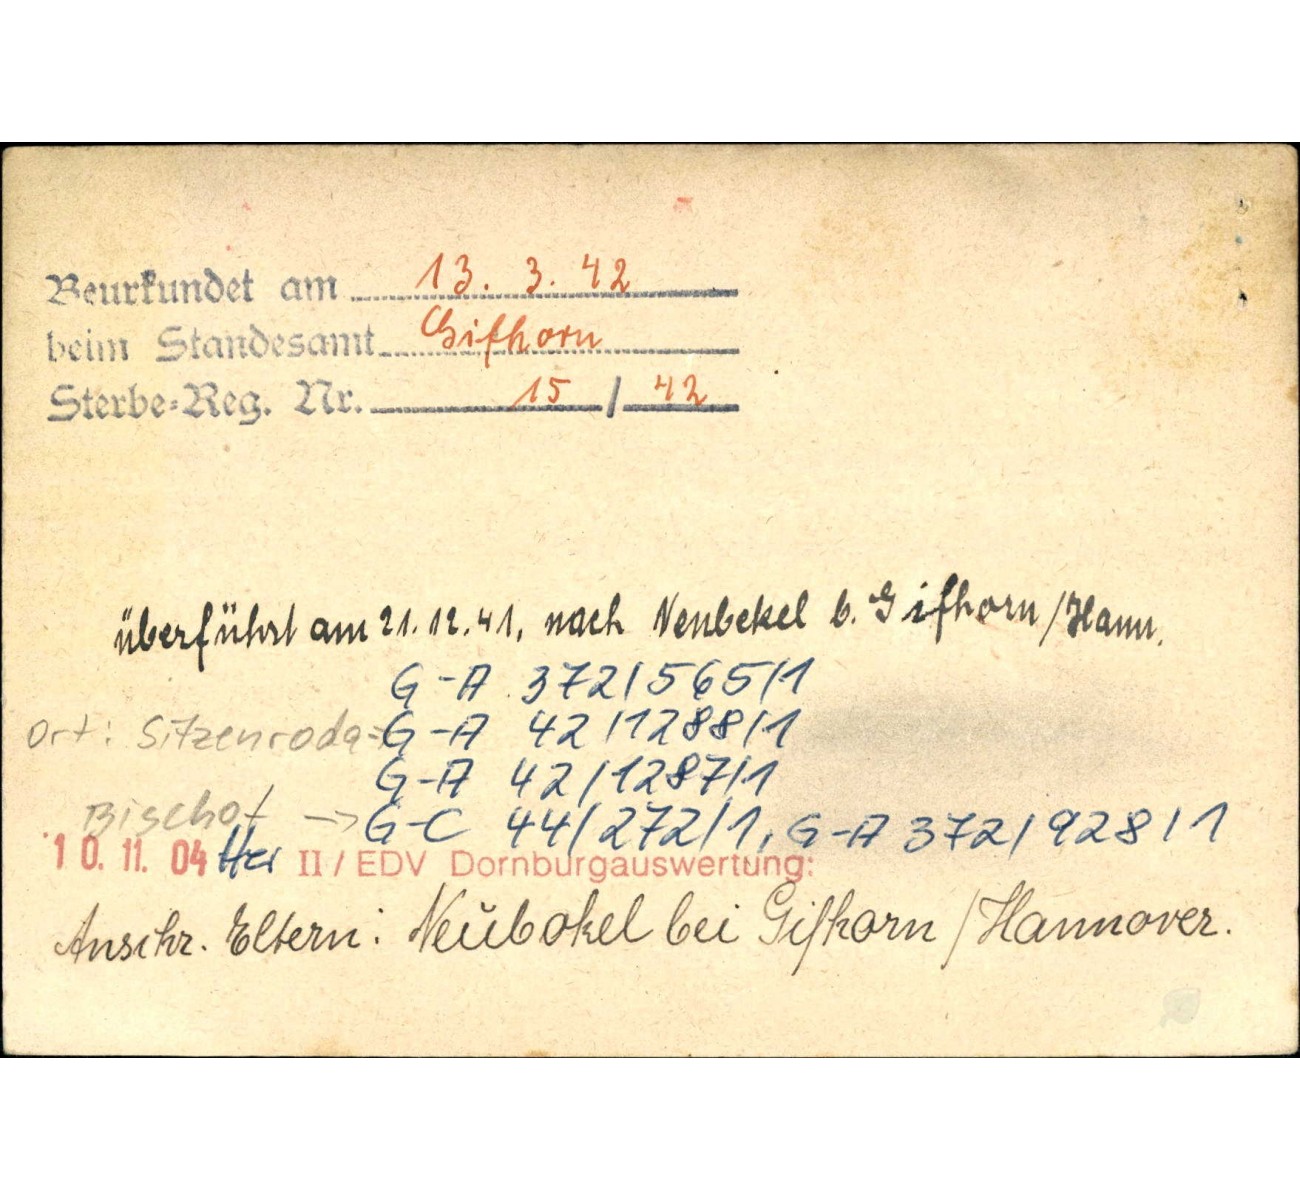 Beurkundet am 13. 3. 42
beim Standesamt Gifhorn
Sterbe-Reg. Nr. 15 / 42
überführt am 21.12.41, nach Neubekel b. Gifhorn/Hann.
G-A 372/565/1
Ort: Sitzenroda = G-A 42/1288/1
G-A 42/1287/1
Bischof -> G-C 44/272/1, G-A 372/928/1
10. 11. 04 Her II / EDV Dornburgauswertung:
Anschr. Eltern: Neubokel bei Gifhorn/Hannover.